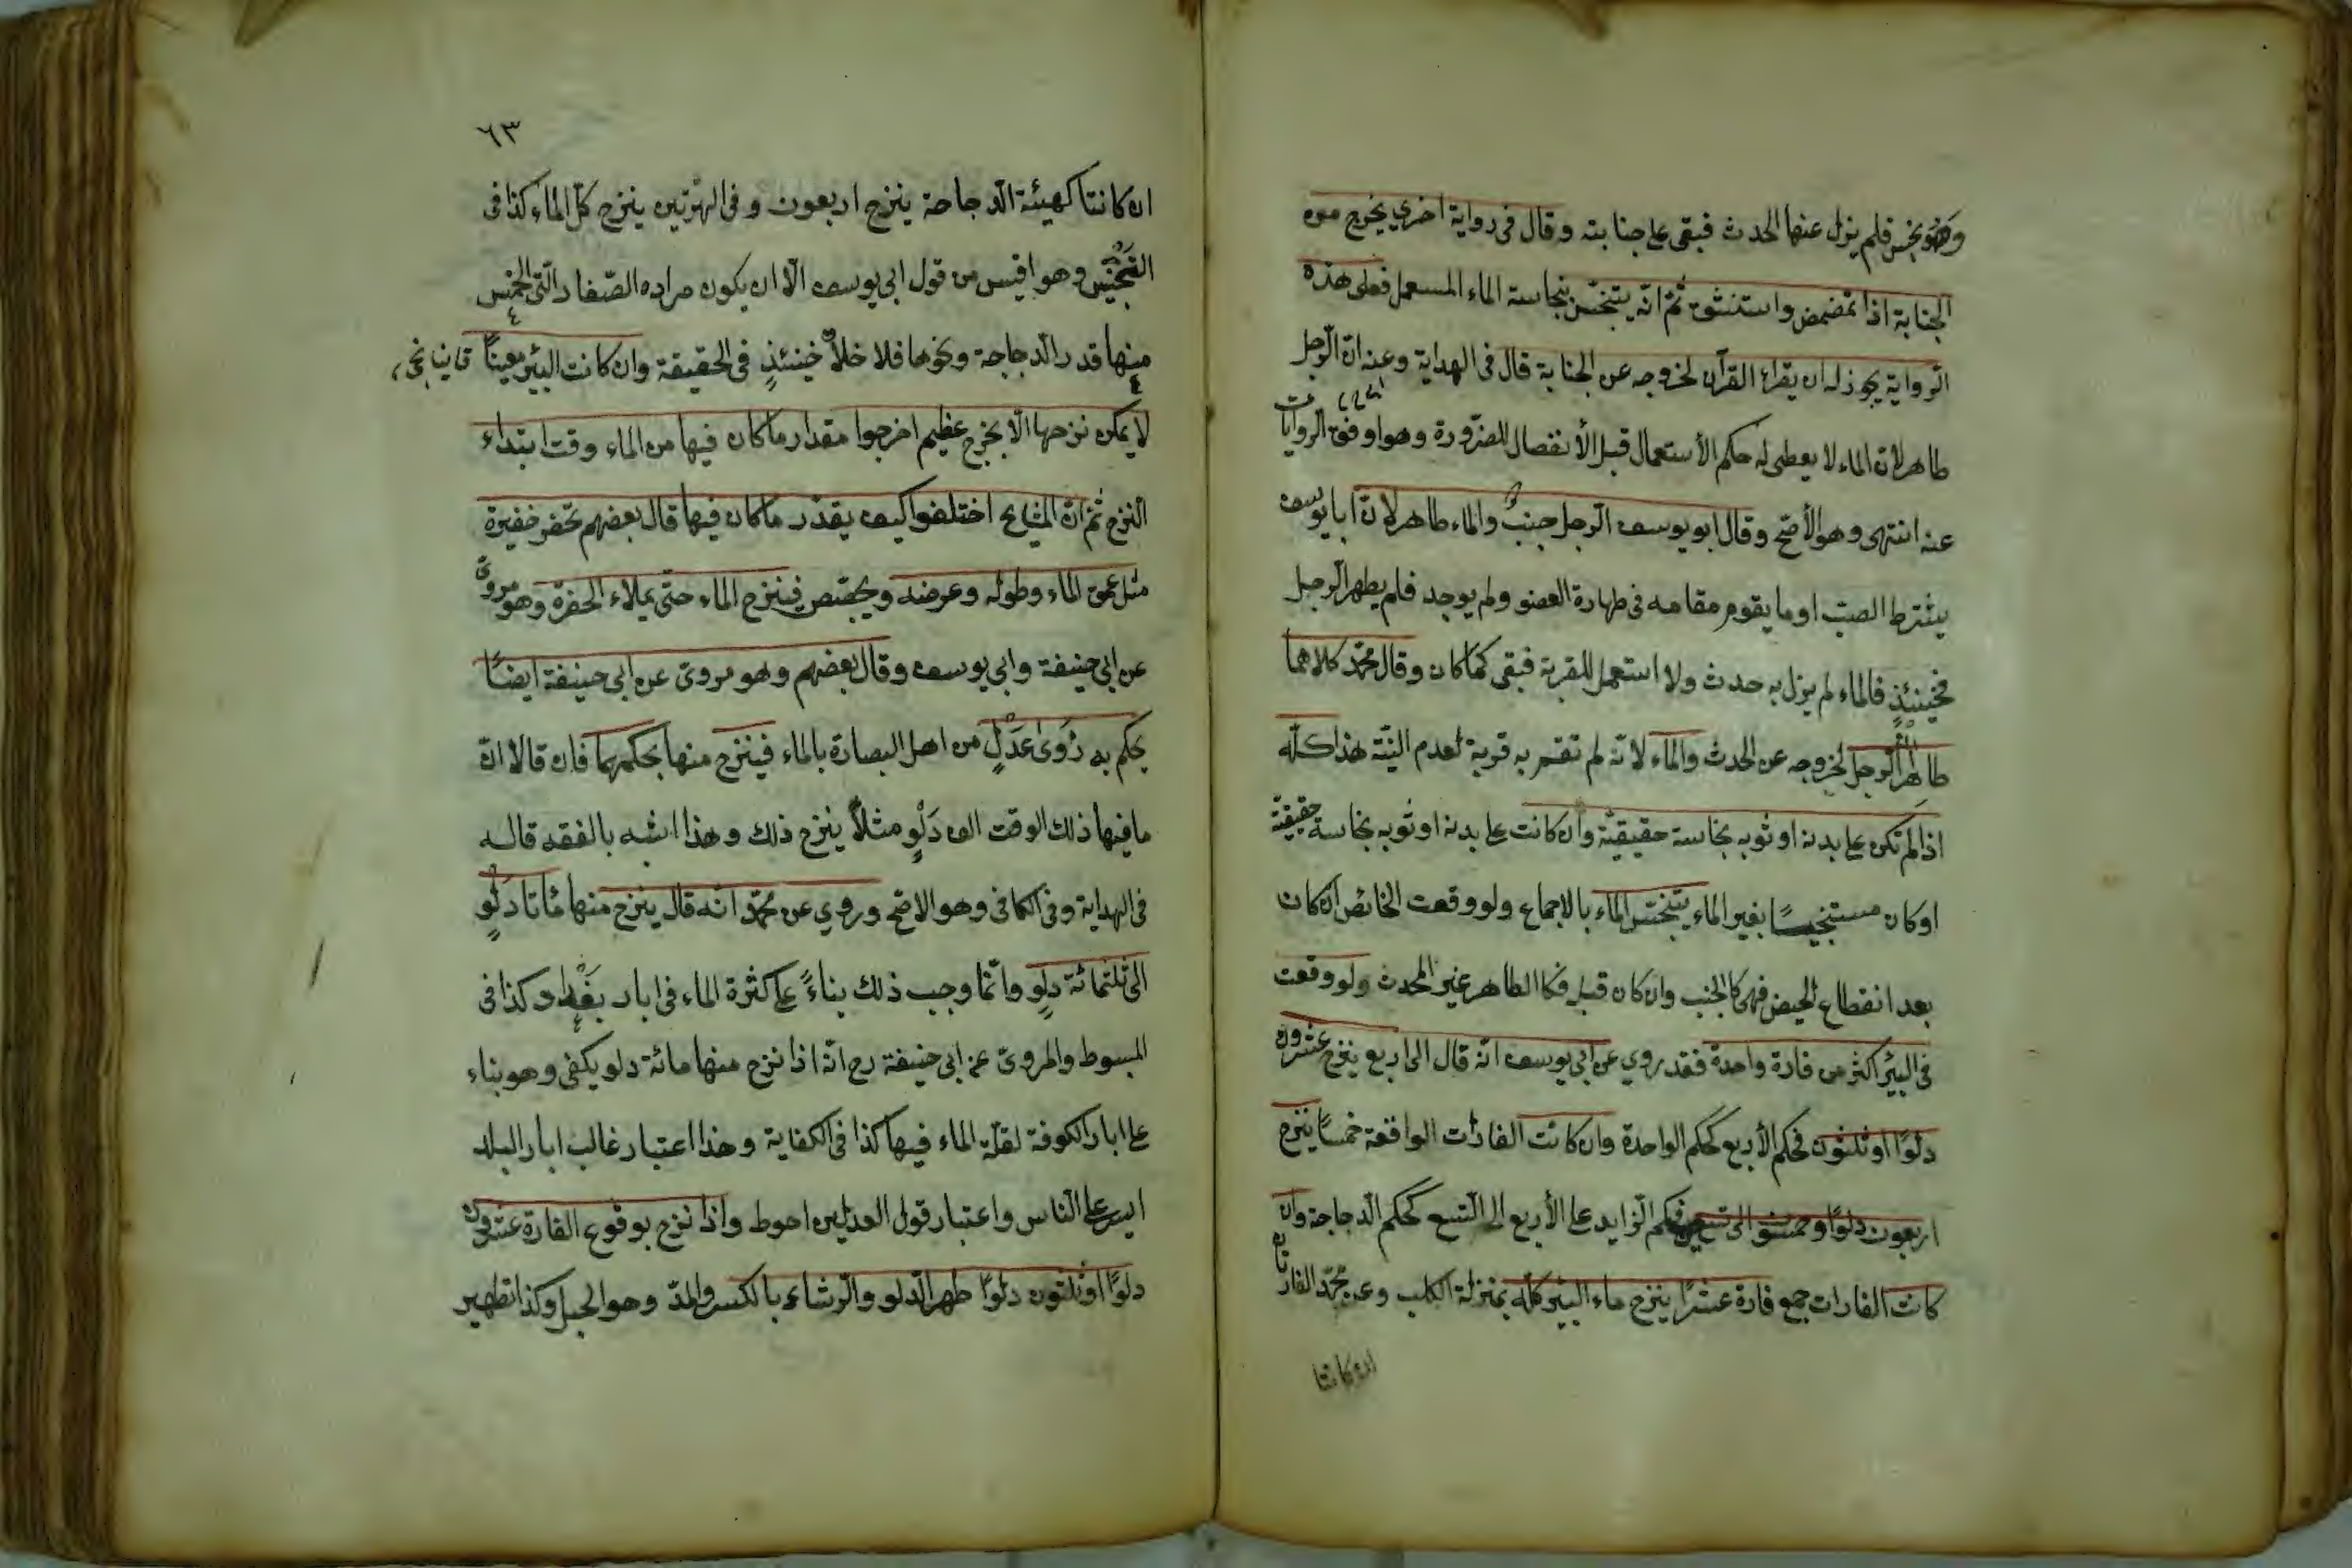 وهو نجس فلم يزل عنها الحدث فبقى على جنابته وقال فى رواية اخرى يخرج من
الجنابة اذا تمضمض واستنشق ثم انه يتنجس بنجاسة الماء المستعمل فعلى هذه
الرواية يجوز له ان يقراء القرآن لخروجه عن الجنابة قال فى الهداية وعنه ان الرجل
طاهر لان الماء لا يعطى له حكم الأستعمال قبل الأنفصال للضرورة وهو اوفق الروايات
عنه انتهى وهو الأصح وقال ابو يوسف الرجل جنبٌ والماء طاهر لان ابا يوسف
يشترط الصب او ما يقوم مقامه فى طهارة العضو ولم يوجد فلم يطهر الرجل
فحينئذٍ فالماء لم يزل به حدث ولا استعمل للقربة فبقى كما كان وقال محمد كلاهما
طاهر الرجل لخروجه عن الحدث والماء لانه لم تقم به قربة لعدم النية هذا كله
اذا لم تكن على بدنه او ثوبه نجاسة حقيقيّة وان كانت على بدنه او ثوبه نجاسة حقيقيّة
او كان مستنجيًا بغير الماء يتنجّس الماء بالاجماع ولو وقعت الحائض ان كان
بعد انقطاع الحيض فهى كالجنب وان كان قبله فكا الطاهر غير المحدث ولو وقعت
فى البئر اكثر من فارة واحدة فقد روي عن ابى يوسف انه قال الى اربع ينزح عشرون
دلوًا او ثلثون فحكم الأربع كحكم الواحدة وان كانت الفارات الواقعة خمسًا ينزح
اربعون دلوًا او خمسون الى تسع فحكم الزايد على الأربع الى التسع كحكم الدجاجة وان
كانت الفارات جمع فارة عشرًا ينزح ماء البئر كله بمنزلة الكلب وعن محمّد الفارتان
ان كانتا
٦٣
ان كانتا كهيئة الدجاجة ينزح اربعون وفى الهرتين ينزح كل الماء كذا فى
التجنيس وهو اقيس من قول ابى يوسف الا ان يكون مراده الصغار التى الخمس
منها قدر الدجاجة ونحوها فلا خلاف حينئذٍ فى الحقيقة وان كانت البئر معينًا
لا يمكن نزحها الا بخرج عظيم اخرجوا مقدار ما كان فيها من الماء وقت ابتداء
النزح ثم ان المشايخ اختلفوا كيف يقدر ما كان فيها قال بعضهم تحفر حفيرة
مثل عمق الماء وطوله وعرضه ويجصّص فينزح الماء حتى يملاء الحفرة وهو مروىّ
عن ابى حنيفة وابى يوسف وقال بعضهم وهو مروىّ عن ابى حنيفة ايضًا
يحكم به ذوى عدلٍ من اهل البصارة بالماء فينزح منها بحكمهما فان قالا انّ
ما فيها ذلك الوقت الف دلوٍ مثلاً ينزح ذلك وهذا اشبه بالفقه قاله
فى الهداية وفى الكافى وهو الاصح وروي عن محمّد انه قال ينزح منها مأتا دلوٍ
الى ثلثمائة دلوٍ وانّما وجب ذلك بناءً على كثرة الماء فى ابار بغداد كذا فى
المبسوط والمروىّ عن ابى حنيفة رح انّه اذا نزح منها مائة دلو يكفى وهو بناء
على ابار الكوفة لقلّة الماء فيها كذا فى الكفاية وهذا اعتبار غالب ابار البلد
ايسر على الناس واعتبار قول العدلين احوط واذا نزح بوقوع الفارة عشرون
دلوًا او ثلثون دلوًا طهر الدلو والرشاء بالكسر والمدّ وهو الحبل وكذا تطهير